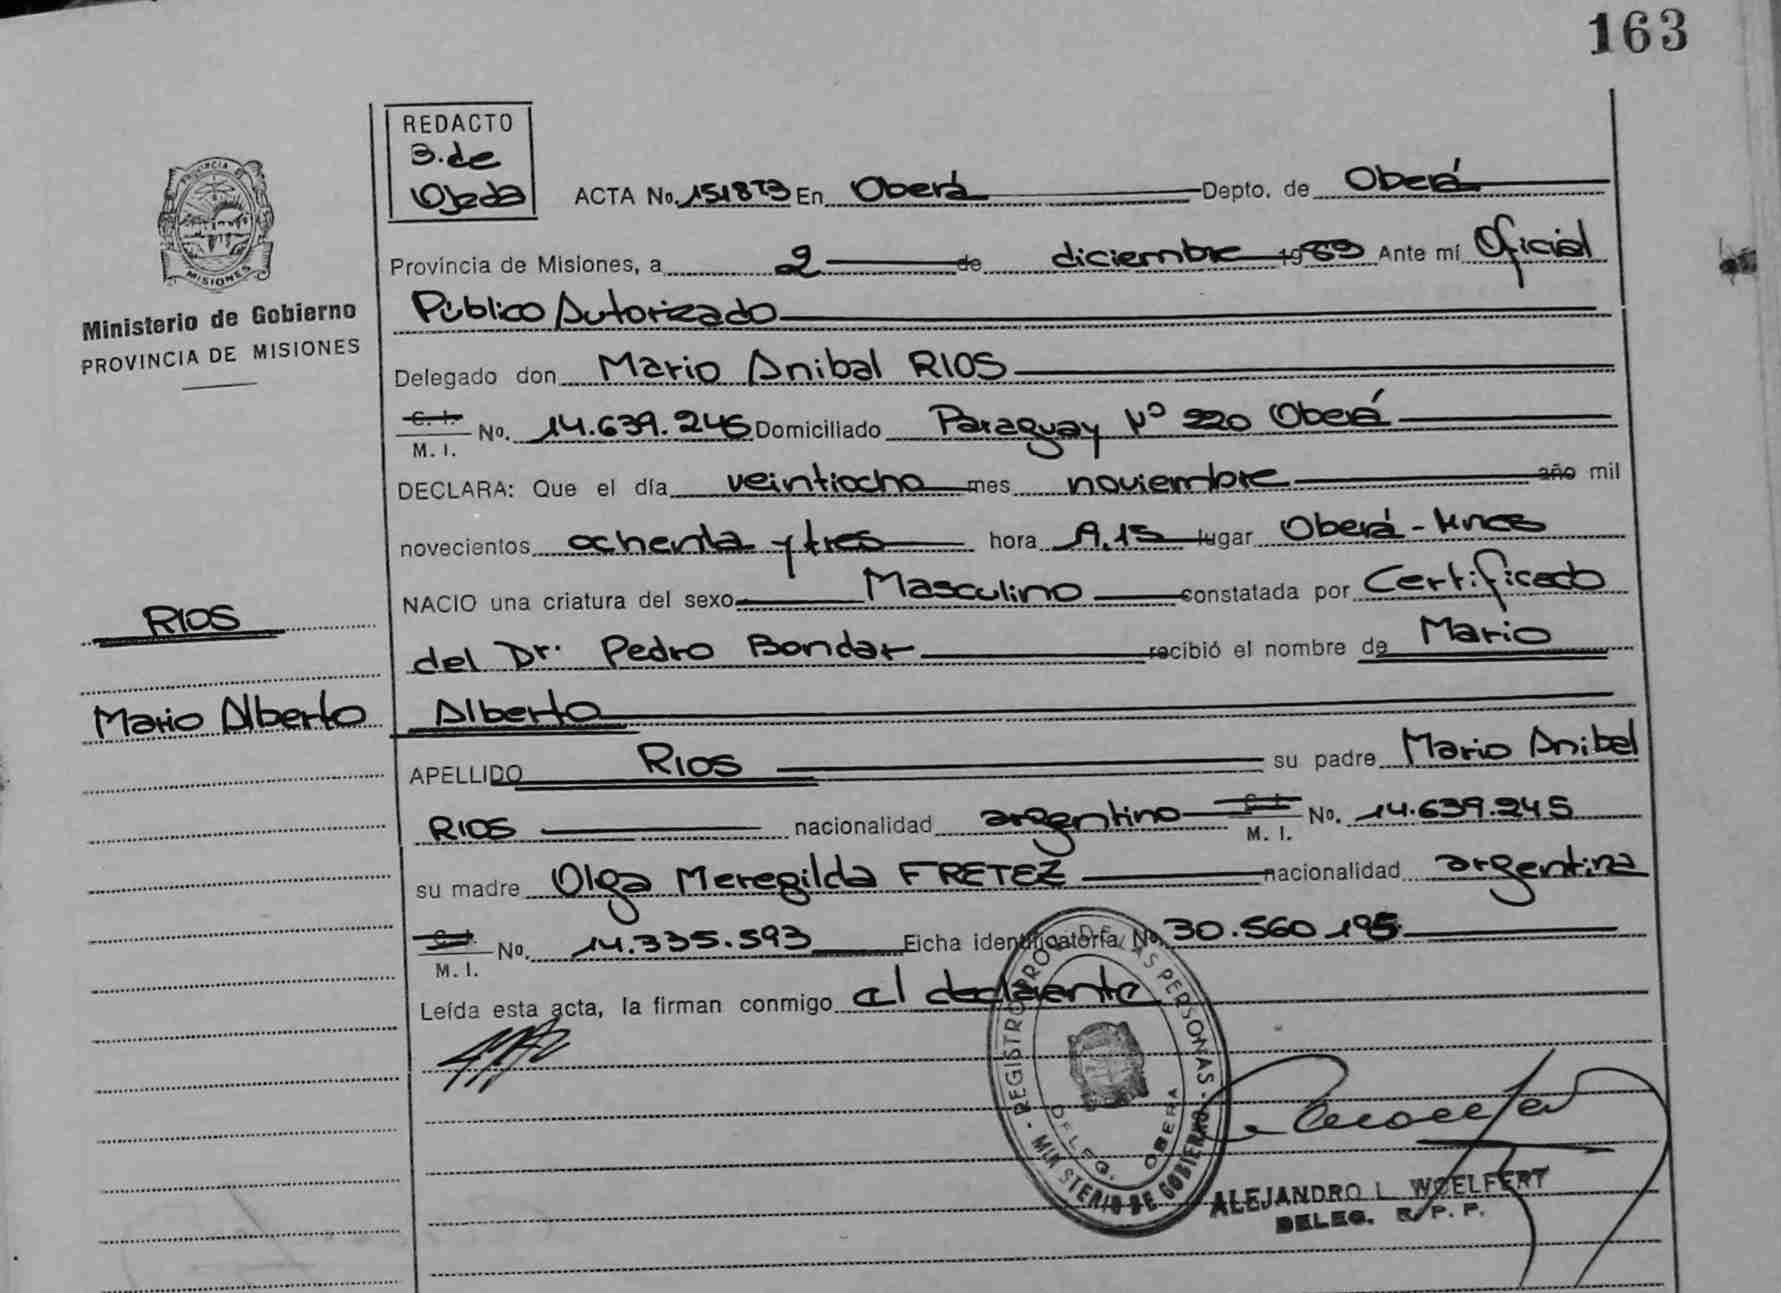 163
REDACTO
3. de
Ojeda
PROVINCIA DE
MISIONES
Ministerio de Gobierno
PROVINCIA DE MISIONES
ACTA No. En Oberá Depto. de Oberá
Provincia de Misiones, a 2 de diciembre 1983 Ante mí Oficial
Público Autorizado
Delegado don Mario Anibal RIOS
C. I.
M. I. No. 14.639.245 Domiciliado Paraguay Nº 220 Oberá
DECLARA: Que el día veintiocho mes noviembre año mil
novecientos ochenta y tres hora lugar Oberá - Mnes
NACIO una criatura del sexo Masculino constatada por Certificado
del Dr. Pedro Bondar recibió el nombre de Mario
Alberto
RIOS
Mario Alberto
APELLIDO RIOS su padre Mario Anibal
RIOS nacionalidad argentino C. I. M. I. No. 14.639.245
su madre Olga Meregilda FRETEZ nacionalidad argentina
C. I.
M. I. No. 14.335.593 Ficha identificatoria No. 30.560.195
Leída esta acta, la firman conmigo el declarante
REGISTRO DE LAS PERSONAS - MINISTERIO DE GOBIERNO -
DELEG. OBERA
ALEJANDRO L. WOELFERT
DELEG. R. P. P.